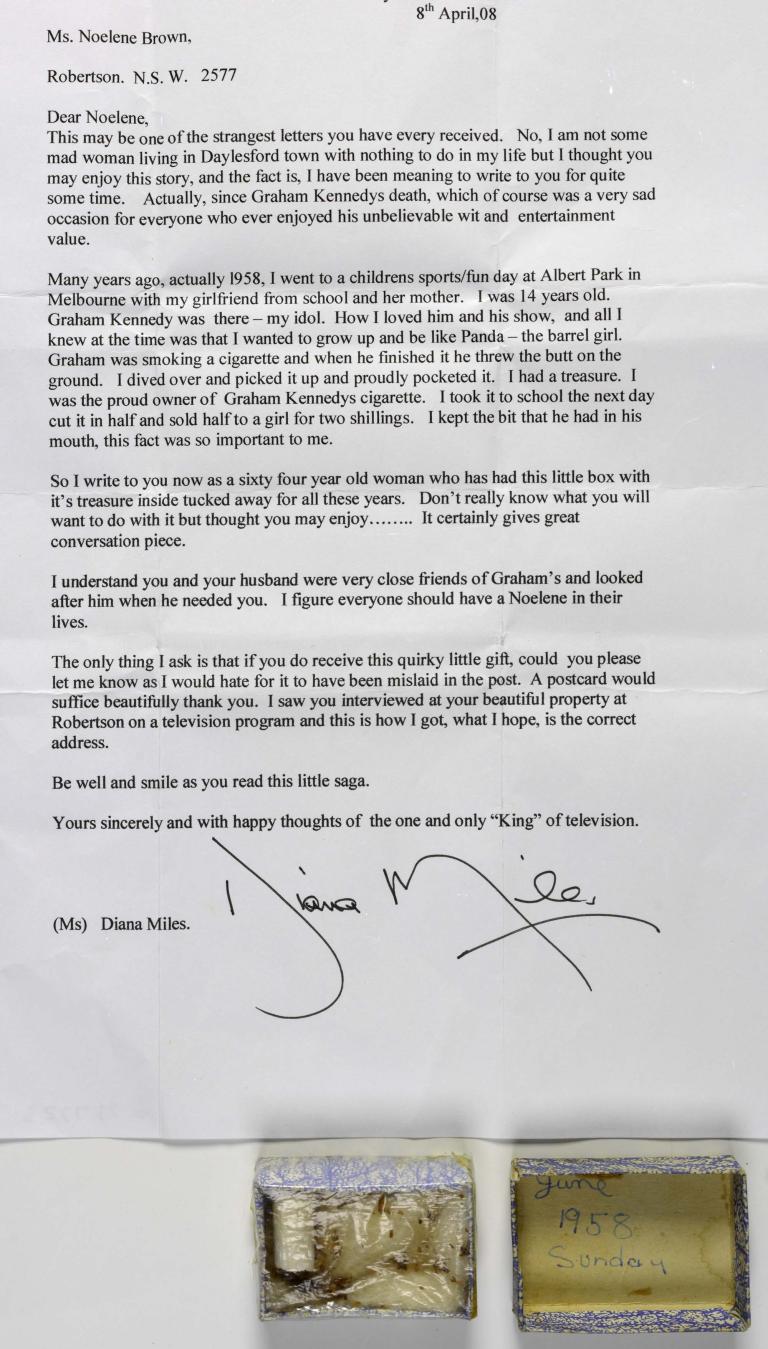 8th April,08
Ms. Noelene Brown,
Robertson. N.S. W. 2577
Dear Noelene,
This may be one of the strangest letters you have every received. No, I am not some
mad woman living in Daylesford town with nothing to do in my life but I thought you
may enjoy this story, and the fact is, I have been meaning to write to you for quite
some time. Actually, since Graham Kennedys death, which of course was a very sad
occasion for everyone who ever enjoyed his unbelievable wit and entertainment
value.
Many years ago, actually 1958, I went to a childrens sports/fun day at Albert Park in
Melbourne with my girlfriend from school and her mother. I was 14 years old.
Graham Kennedy was there – my idol. How I loved him and his show, and all I
knew at the time was that I wanted to grow up and be like Panda – the barrel girl.
Graham was smoking a cigarette and when he finished it he threw the butt on the
ground. I dived over and picked it up and proudly pocketed it. I had a treasure. I
was the proud owner of Graham Kennedys cigarette. I took it to school the next day
cut it in half and sold half to a girl for two shillings. I kept the bit that he had in his
mouth, this fact was so important to me.
So I write to you now as a sixty four year old woman who has had this little box with
it's treasure inside tucked away for all these years. Don't really know what you will
want to do with it but thought you may enjoy…….. It certainly gives great
conversation piece.
I understand you and your husband were very close friends of Graham's and looked
after him when he needed you. I figure everyone should have a Noelene in their
lives.
The only thing I ask is that if you do receive this quirky little gift, could you please
let me know as I would hate for it to have been mislaid in the post. A postcard would
suffice beautifully thank you. I saw you interviewed at your beautiful property at
Robertson on a television program and this is how I got, what I hope, is the correct
address.
Be well and smile as you read this little saga.
Yours sincerely and with happy thoughts of the one and only “King” of television.
Diana Miles
(Ms) Diana Miles.
June
1958
Sunday